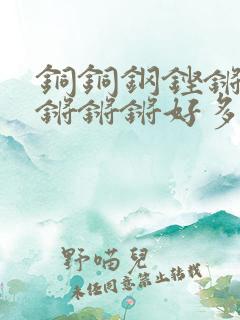 銅銅鋼鏗鏘
鏘鏘鏘好多
野喵兒
未經同意禁止轉載